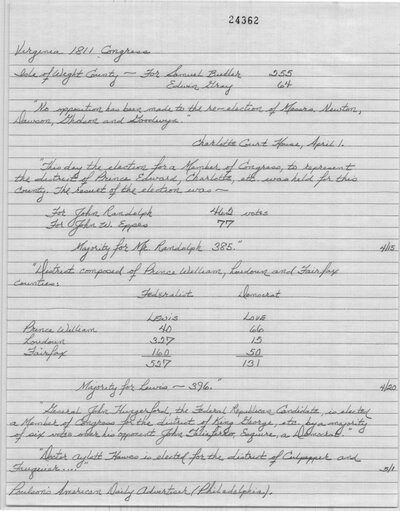 24362
Virginia 1811 Congress
Isle of Wight County — For Samuel Butler 255
Edwin Gray 64
"No opposition has been made to the re-election of Messrs. Newton,
Dawson, Gholson and Goodwyn."
Charlotte Court House, April 1.
"This day the election for a Member of Congress, to represent
the district of Prince Edward, Charlotte, etc. was held for this
County. The result of the election was —
For John Randolph votes
For John W. Eppes 77
Majority for Mr. Randolph 385." 4/15
"District composed of Prince William, Loudoun and Fairfax
counties:
Federalist Democrat
Lewis Love
Prince William 40 66
Loudoun 327 15
Fairfax 160 50
527 131
Majority for Lewis — 396." 4/20
"General John Hungerford, the Federal Republican Candidate, is elected
a Member of Congress for the district of King George, etc. by a majority
of six votes over his opponent John Taliaferro, Esquire, a Democrat."
"Doctor Aylett Hawes is elected for the district of Culpepper and
Fauquier...." 5/1
Poulson's American Daily Advertiser (Philadelphia).